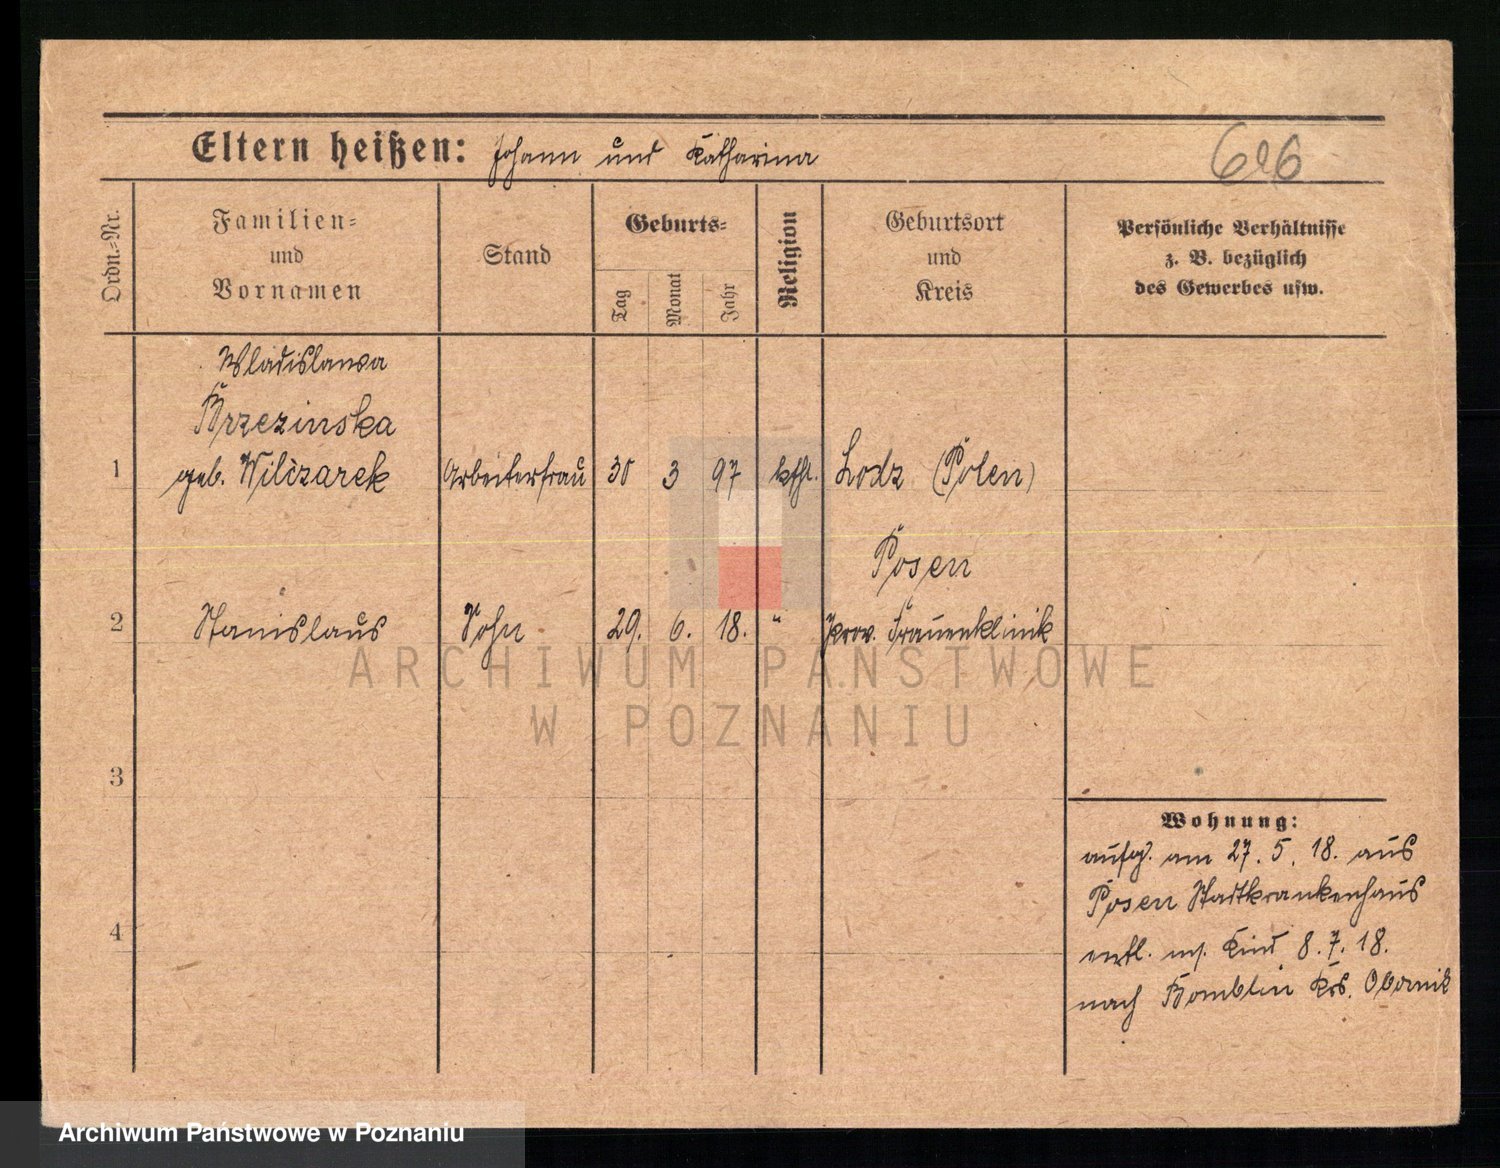 Eltern heißen: Johann und Katharina
626
Ordn.-Nr.
Familien-
und
Vornamen
Stand
Geburts-
Tag
Monat
Jahr
Religion
Geburtsort
und
Kreis
Persönliche Verhältnisse
z. B. bezüglich
des Gewerbes usw.
Wladislawa
Brzezinska
1 geb. Wilczarek Arbeiterfrau 30 3 97 kthl. Lodz (Polen)
Posen
2 Stanislaus Sohn 29. 6. 18. " Prov. Frauenklinik
3
4
Wohnung:
aufg. am 27. 5. 18. aus
Posen Stadtkrankenhaus
entl. m. Kind 8. 7. 18.
nach Bomblin Krs. Obornik
ARCHIWUM PAŃSTWOWE
W POZNANIU
Archiwum Państwowe w Poznaniu